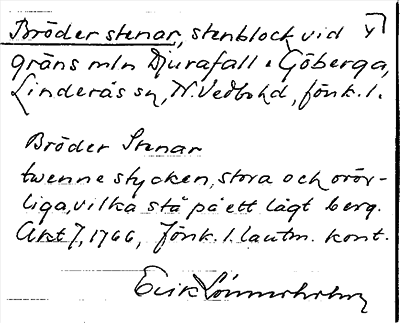 Bröder stenar, stenblock vid
gräns mln Djurafall o Göberga,
Linderås sn, N. Vedbo hd, Jönk. l.
Bröder Stenar
twenne stycken, stora och orör-
liga, vilka stå på ett lågt berg.
Akt 7, 1766, Jönk. l. lantm. kont.
Erik Lönnerholm